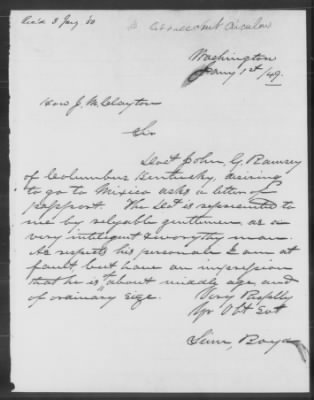 Washington
Jany 1st /49.
Hon J. M. Clayton
Sir
Doct John, G. Ramsey
of Columbus Kentucky, desiring
to go to Mexico asks a letter of
passport. The Doct is represented to
me by relyable gentlemen, as a
very inteligent & worthy man.
As respects his personale I am at
fault, but have an impression
that he is "about middle age, and
of ordinary size.
Very Respflly
Yr Obt Svt
Linn, Boyd